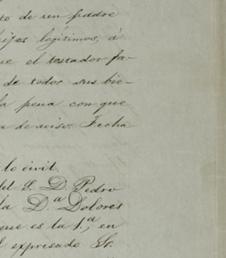 to de un padre
hijos legítimos, á
ue el testador fa-
de todos sus bie-
la pena con que
de aviso. Fecha
lo civil
del S. D. Pedro
la Dª Dolores
que es la 1,ª en
l expresado Sr.